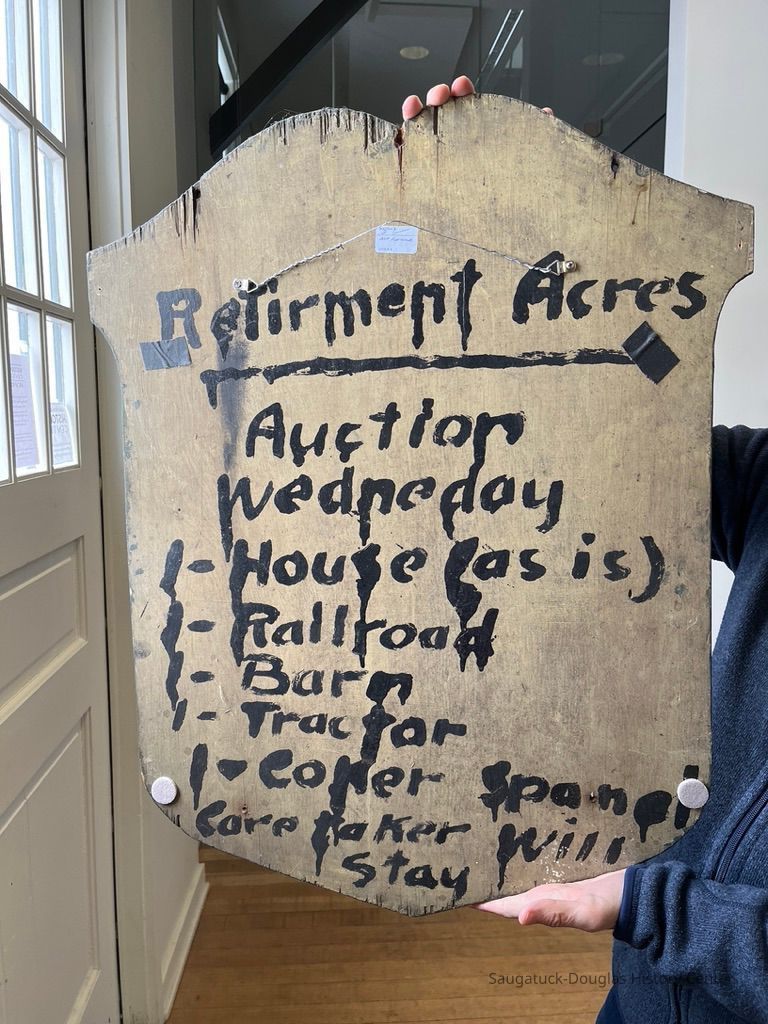 Retirment Acres
Auction
Wedneday
1-House (as is)
1-Railroad
1-Barn
1-Tractor
1-Coper Spanel
Care Taker Will
Stay
Saugatuck-Douglas History Center